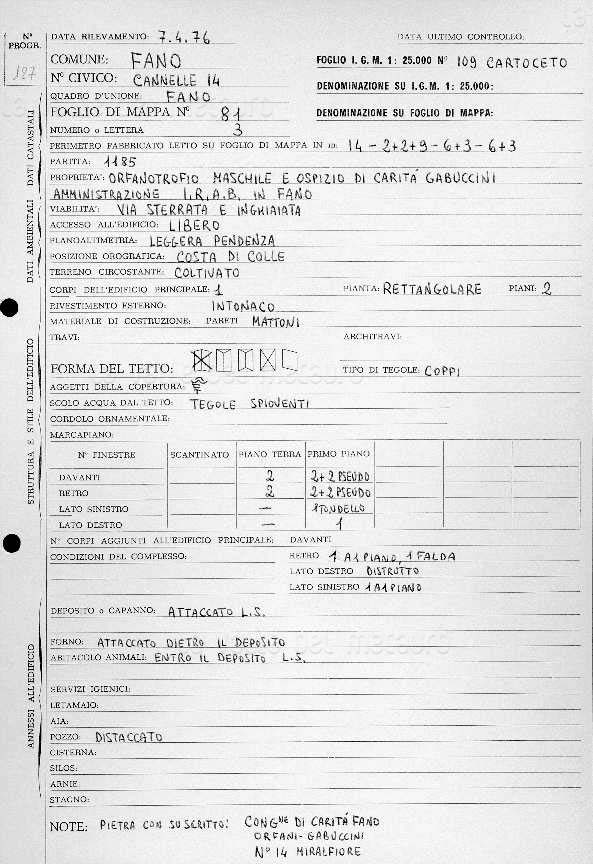 N° PROGR.
187
DATA RILEVAMENTO: 7.4.76
DATA ULTIMO CONTROLLO:
COMUNE: FANO
FOGLIO I. G. M. 1: 25.000 N° 109 CARTOCETO
N° CIVICO: CANNELLE 14
DENOMINAZIONE SU I.G.M. 1: 25.000:
QUADRO D'UNIONE: FANO
FOGLIO DI MAPPA N° 81
DENOMINAZIONE SU FOGLIO DI MAPPA:
NUMERO o LETTERA 3
PERIMETRO FABBRICATO LETTO SU FOGLIO DI MAPPA IN m: 14-2+2+9-6+3-6+3
PARTITA: 1185
PROPRIETA': ORFANOTROFIO MASCHILE E OSPIZIO DI CARITÀ GABUCCINI
AMMINISTRAZIONE I.R.A.B. IN FANO
VIABILITA': VIA STERRATA E INGHIAIATA
ACCESSO ALL'EDIFICIO: LIBERO
PLANOALTIMETRIA: LEGGERA PENDENZA
POSIZIONE OROGRAFICA: COSTA DI COLLE
TERRENO CIRCOSTANTE: COLTIVATO
CORPI DELL'EDIFICIO PRINCIPALE: 1
PIANTA: RETTANGOLARE PIANI: 2
RIVESTIMENTO ESTERNO: INTONACO
MATERIALE DI COSTRUZIONE: PARETI MATTONI
TRAVI:
ARCHITRAVI:
FORMA DEL TETTO:
TIPO DI TEGOLE: COPPI
AGGETTI DELLA COPERTURA:
SCOLO ACQUA DAL TETTO: TEGOLE SPIOVENTI
CORDOLO ORNAMENTALE:
MARCAPIANO:
N° FINESTRE SCANTINATO PIANO TERRA PRIMO PIANO
DAVANTI 2 2+2 PSEUDO
RETRO 2 2+2 PSEUDO
LATO SINISTRO — 1 TONDELLO
LATO DESTRO — 1
N° CORPI AGGIUNTI ALL'EDIFICIO PRINCIPALE: DAVANTI
CONDIZIONI DEL COMPLESSO:
RETRO 1 A 1 PIANO, 1 FALDA
LATO DESTRO DISTRUTTO
LATO SINISTRO 1 A 1 PIANO
DEPOSITO o CAPANNO: ATTACCATO L.S.
FORNO: ATTACCATO DIETRO IL DEPOSITO
ABITACOLO ANIMALI: ENTRO IL DEPOSITO L.S.
SERVIZI IGIENICI:
LETAMAIO:
AIA:
POZZO: DISTACCATO
CISTERNA:
SILOS:
ARNIE:
STAGNO:
NOTE: PIETRA CON SU SCRITTO: CONG.NE DI CARITÀ FANO
ORFANI-GABUCCINI
N° 14 MIRALFIORE
DATI CATASTALI
DATI AMBIENTALI
STRUTTURA E STILE DELL'EDIFICIO
ANNESSI ALL'EDIFICIO